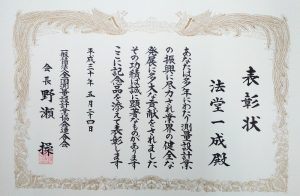 表彰状
法堂一成殿
あなたは多年にわたり測量設計業
の振興に尽力され業界の健全な
発展に多大な貢献をされました
その功績は誠に顕著なものがあります
ここに記念品を添えて表彰します
平成三十年五月二十四日
一般社団法人全国測量設計業協会連合会
会長 野瀬操